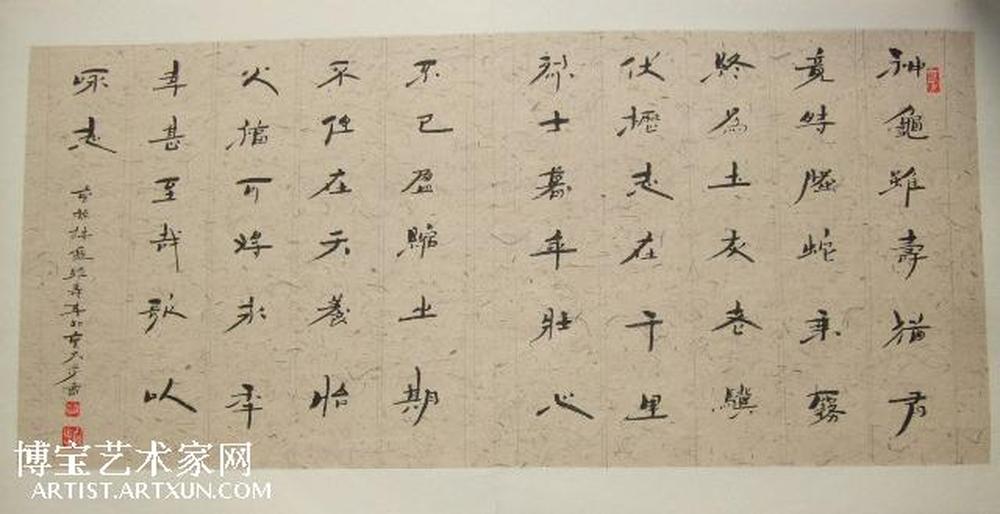 神龜雖壽猶有
竟時騰蛇乘霧
終為土灰老驥
伏櫪志在千里
烈士暮年壯心
不已盈縮之期
不但在天養怡
之福可得永年
幸甚至哉歌以
咏志
博宝艺术家网
ARTIST.ARTXUN.COM